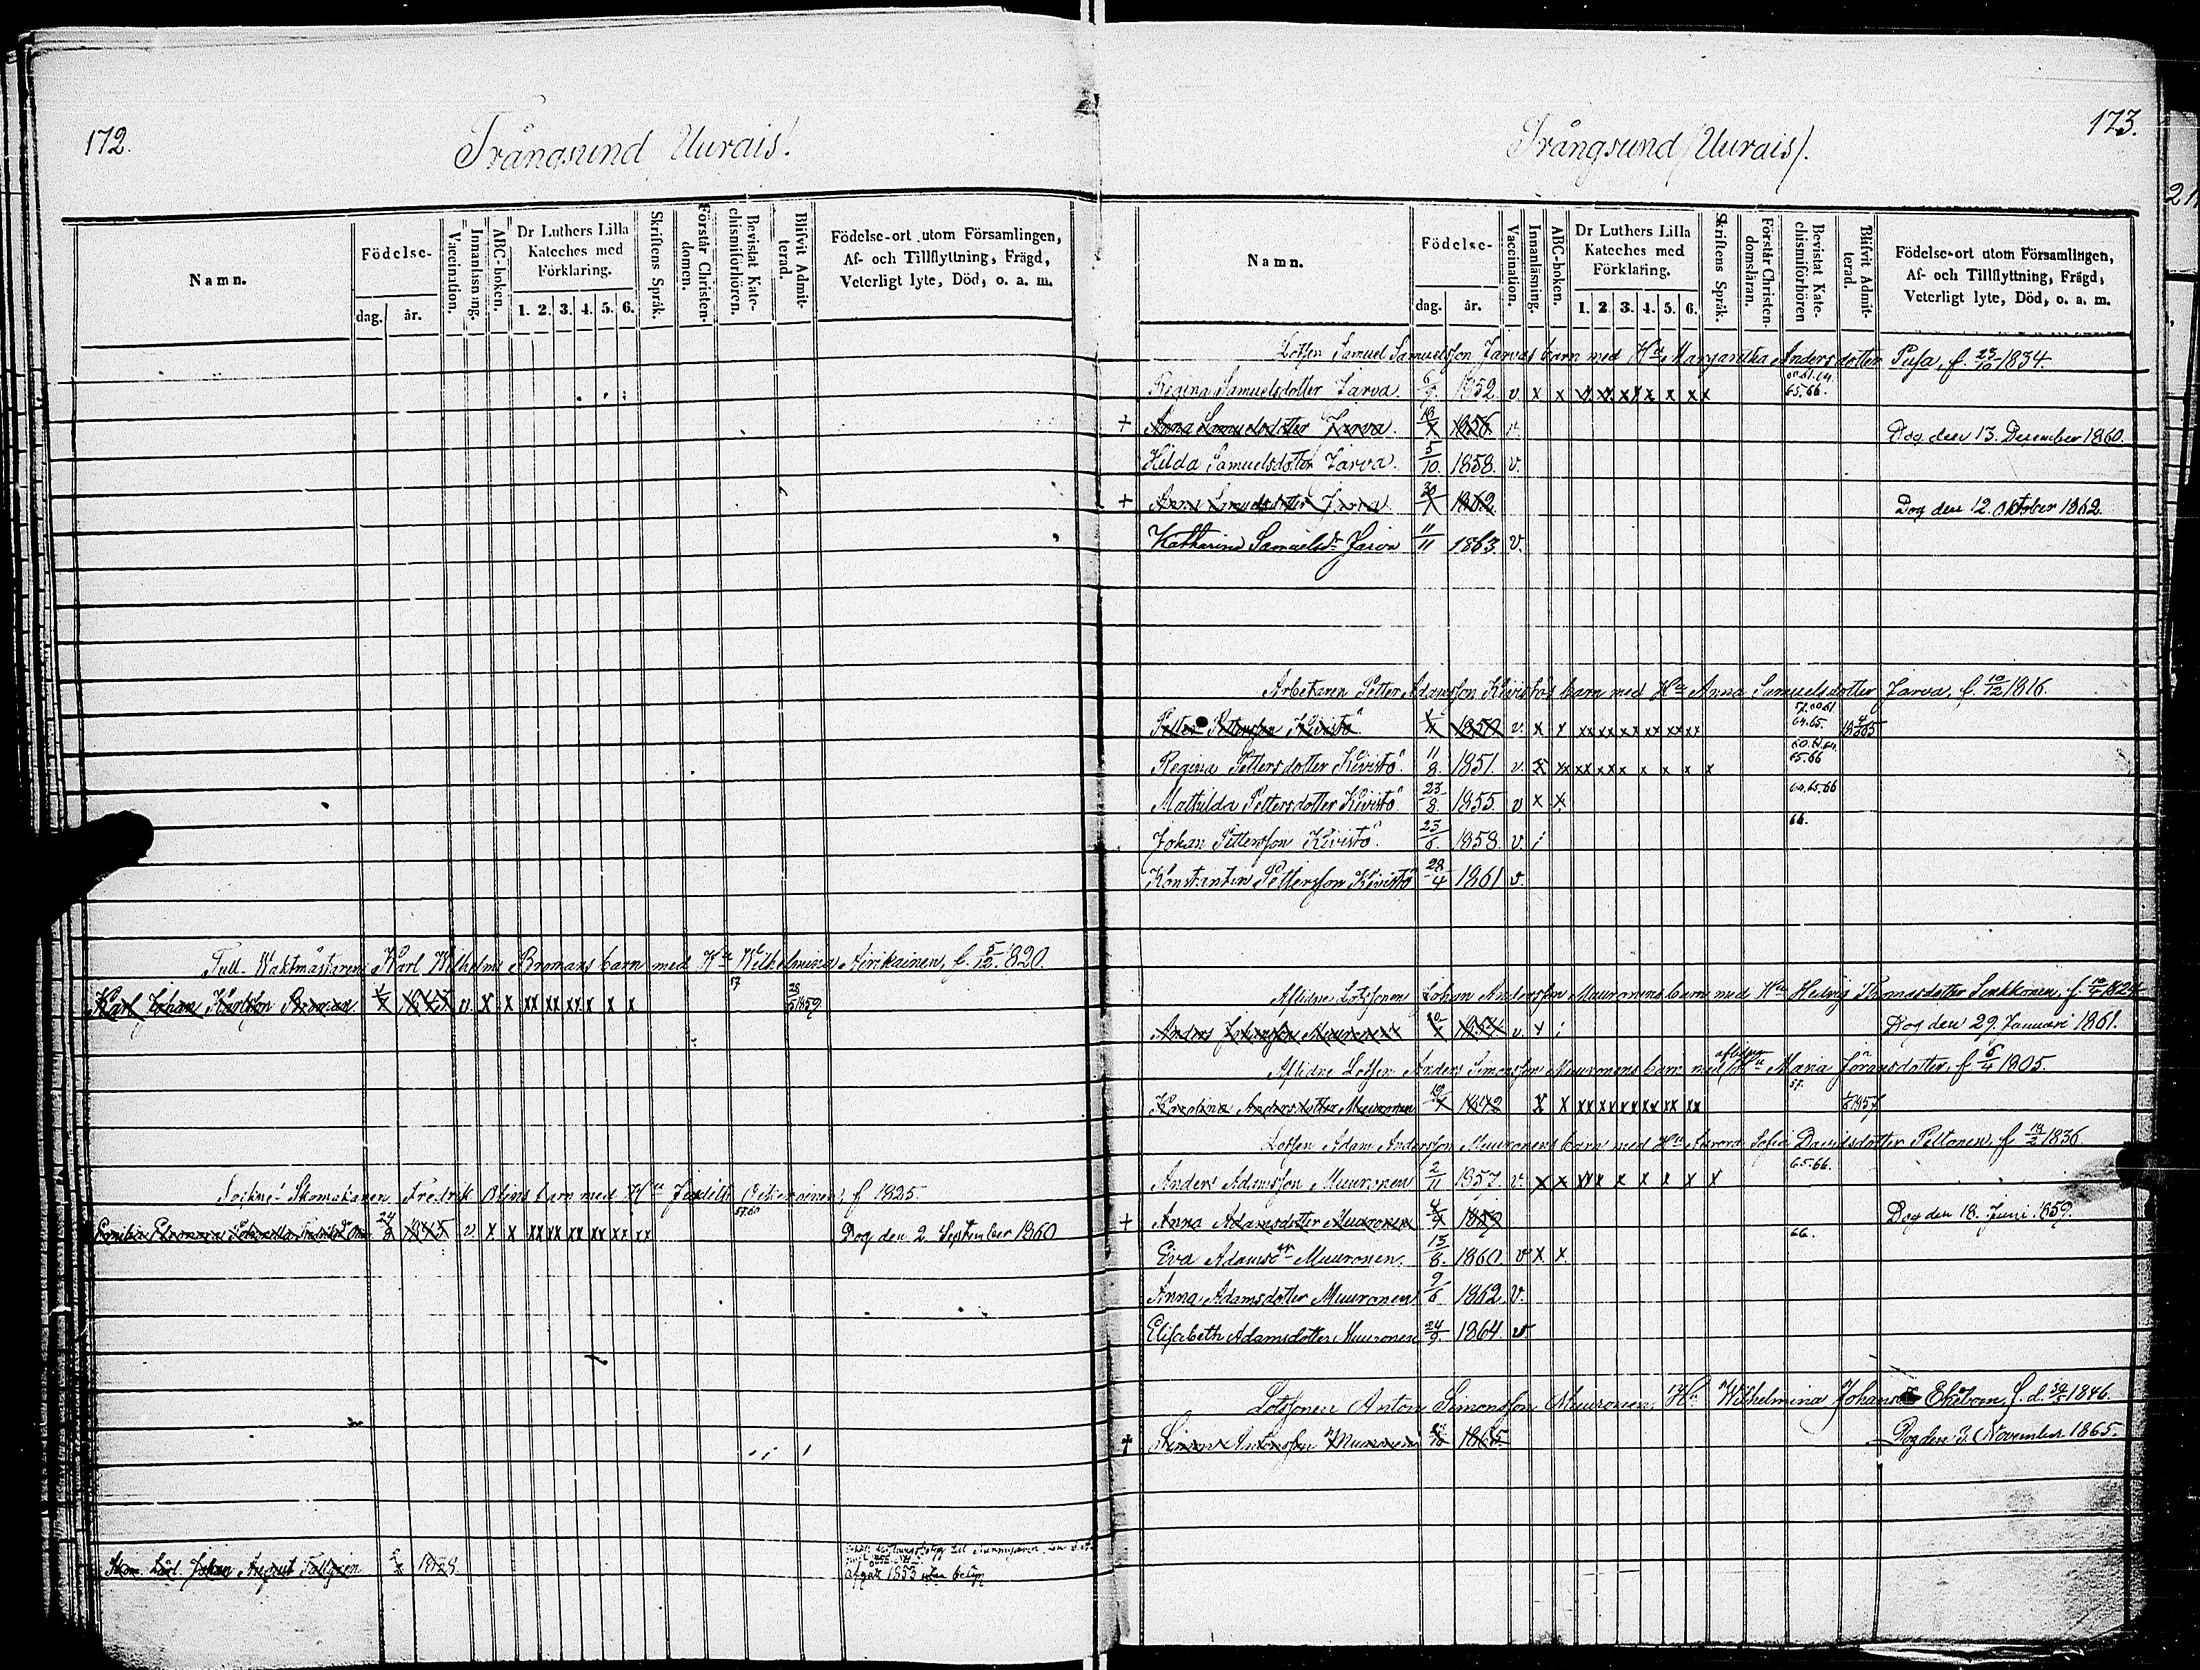 172.
Trångsund Uurais!
Namn.
Födelse-
dag.
år.
Vaccination.
Innanläsning.
ABC-boken.
Dr Luthers Lilla
Kateches med
Förklaring.
1. 2. 3. 4. 5. 6.
Skriftens Språk.
Förstår Christen-
domen.
Bevistat Kate-
chismiförhören.
Blifvit Admit-
terad.
Födelse-ort utom Församlingen,
Af- och Tillflyttning, Frägd,
Veterligt lyte, Död, o. a. m.
Tull-Waktmästaren Karl Wilhelm Bromans barn med Hu Wilhelmina Airikainen, f. 5/12 1820.
Karl Johan Karlsson Broman v. x x xx xx xx x x x 57 28/5 1859
Skomakaren Fredrik Olins barn med Hu Judith f 1825.
Emilia Eleonora 24/8 1845 v. x x xx xx xx xx xx xx 57.60 Dog den 2 September 1860
Johan August 1828
afgått 1853
173.
Trångsund /Uurais/.
Namn.
Födelse-
dag.
år.
Vaccination.
Innanläsning.
ABC-boken.
Dr Luthers Lilla
Kateches med
Förklaring.
1. 2. 3. 4. 5. 6.
Skriftens Språk.
Förstår Christen-
domsläran.
Bevistat Kate-
chismiförhören
Blifvit Admit-
terad.
Födelse-ort utom Församlingen,
Af- och Tillflyttning, Frägd,
Veterligt lyte, Död, o. a. m.
Lotsen Samuel Samuelsson Jarvas barn med Hu Margaretha Andersdotter Pusa, f. 23/10 1834.
Regina Samuelsdotter Jarva. 6/9. 1852. v x x 65.66.
+ Anna Samuelsdotter Jarva. 1856. v. Dog den 13. December 1860.
Hilda Samuelsdotter Jarva. 5/10. 1858. v.
+ Anna Samuelsdotter Jarva 30/1 1862. Dog den 12. Oktober 1862.
Katharina Samuelsdr Jarva 11/11 1863 v.
Arbetaren Petter Adamsson Kivistös barn med Hu Anna Samuelsdotter Jarva, f. 10/12 1816.
Petter Pettersson Kivistö. 1850 v. x x xx xx xx xx xx xx 64.65. 1865
Regina Pettersdotter Kivistö. 11/8. 1851. v. x xx xx xx x x x x x 60.61.64. 65.66
Mathilda Pettersdotter Kivistö. 23/8. 1855 v x x. 64.65.66
Johan Pettersson Kivistö. 25/6. 1858. v. i 66.
Konstantin Pettersson Kivistö 28/4 1861 v.
Aflidne Lotsen Johan Andersson Muuronens barn med Hu Hedvig Thomasdotter Sinkkonen, f. 1824
Anders Johansson Muuronen 1854 v x i Dog den 29. Januari 1861.
Aflidne Lotsen Anders Simonsson Muuronens barn med aflidna Hu Maria Jöransdotter, f 6/4 1805.
Karolina Andersdotter Muuronen 1842 x x xx xx xx xx xx xx 57. 1857
Lotsen Adam Andersson Muuronens barn med Hu Aurora Sofia Davidsdotter Peltonen, f 18/2 1836
Anders Adamsson Muuronen 2/11 1857. v. x x xx x x x x x x 65.66.
+ Anna Adamsdotter Muuronen 1859 Dog den 18. Juni 1859.
Eva Adamsdr Muuronen. 13/8. 1860. v x x. 66.
Anna Adamsdotter Muuronen 9/6 1862. v.
Elisabeth Adamsdotter Muuronen 24/9 1864. v
Lotsen Anton Simonsson Muuronen, Hu Wilhelmina Johansdr f. d. 1846.
† Simon Antonsson Muuronen 1865 Dog den 3. November 1865.